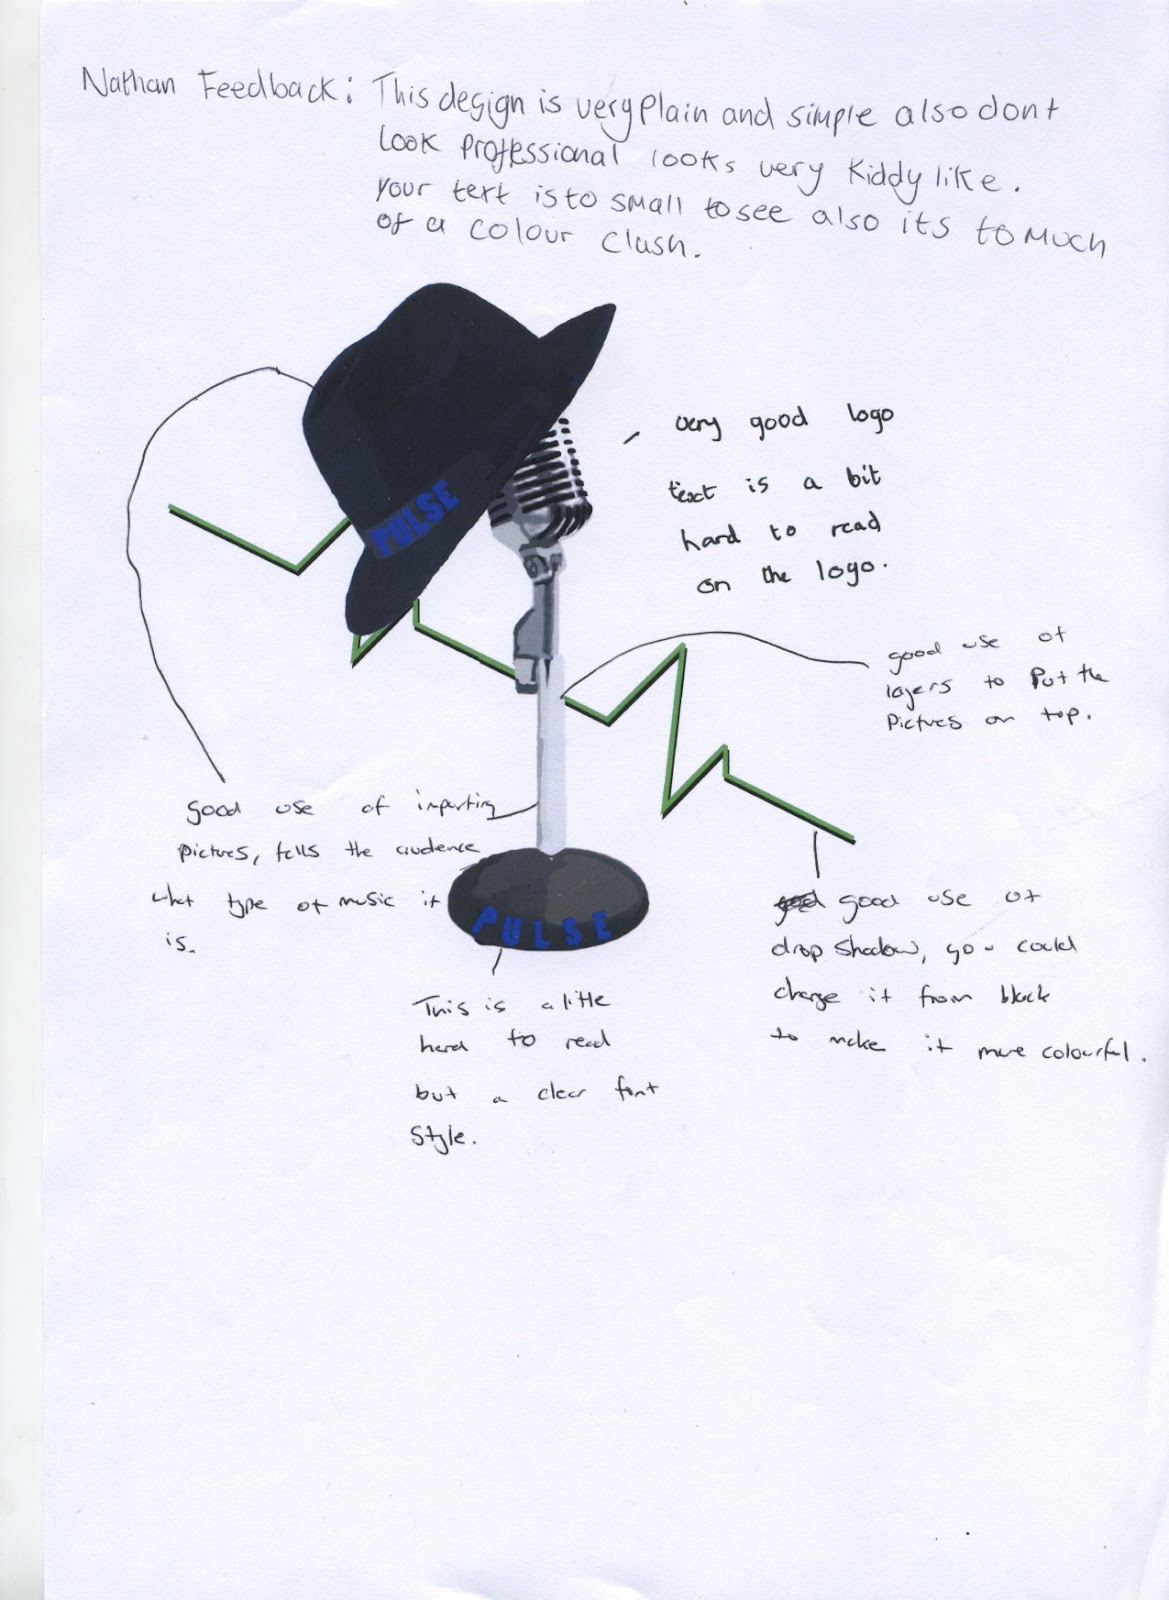 Nathan Feedback: This design is very Plain and simple also dont
look professional looks very kiddy like.
your text is to small to see also its to much
of a colour clash.
very good logo
text is a bit
hard to read
on the logo.
PULSE
good use of
layers to Put the
Pictures on top.
good use of importing
pictures, tells the audence
what type of music it
is.
PULSE
good good use of
drop shadow, you could
change it from black
to make it more colourful.
This is a little
hard to read
but a clear font
Style.